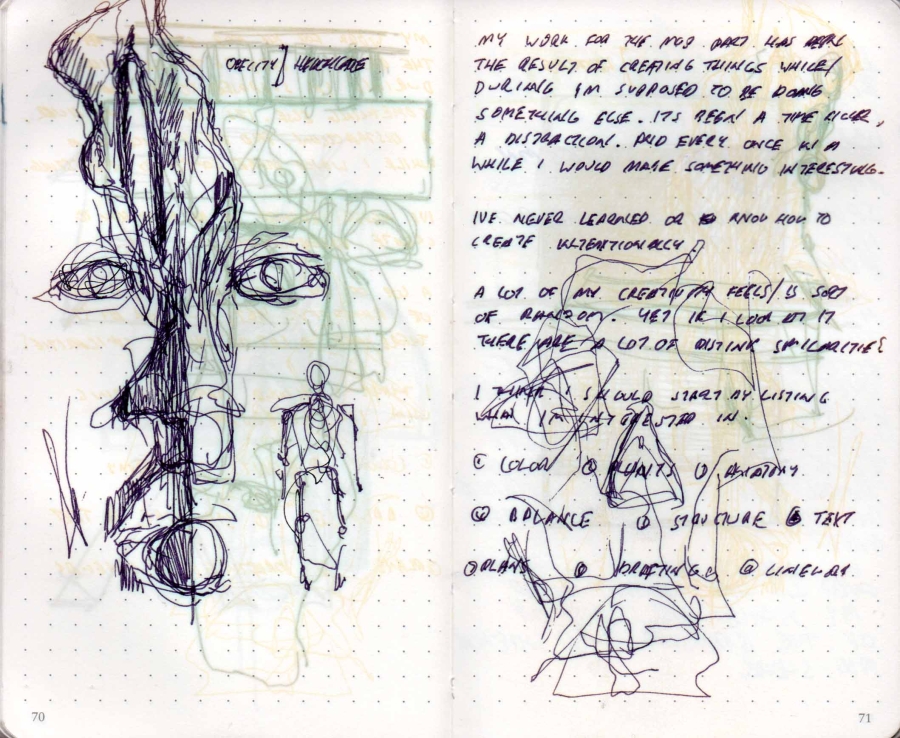 OPACITY] HEALTHCARE
MY WORK FOR THE MOST PART HAS BEEN
THE RESULT OF CREATING THINGS WHILE/
DURING IM SUPPOSED TO BE DOING
SOMETHING ELSE. ITS BEEN A TIME KILLER,
A DISTRACTION. AND EVERY ONCE IN A
WHILE I WOULD MAKE SOMETHING INTERESTING.
IVE NEVER LEARNED OR KNOW HOW TO
CREATE INTENTIONALLY
A LOT OF MY CREATIVITY FEELS/IS SORT
OF RANDOM. YET IF I LOOK AT IT
THERE ARE A LOT OF DISTINK SIMILARITIES
I THINK I SHOULD START BY LISTING
WHAT I'M INTERESTED IN.
COLOR PLANTS ANATOMY
BALANCE STRUCTURE TEXT
PLANS DRAFTING LINEWORK
70
71